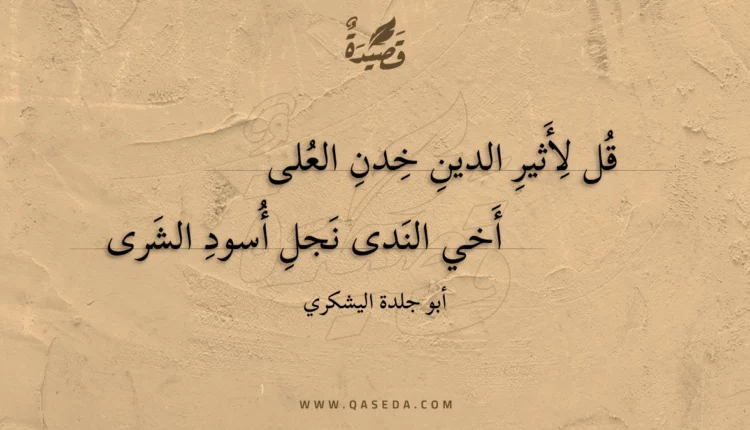 قَصِيْدَةٌ
قُل لِأَثيرِ الدينِ خِدنِ العُلى
أَخي النَدى نَجلِ أُسودِ الشَرى
أبو جلدة اليشكري
WWW.QASEDA.COM